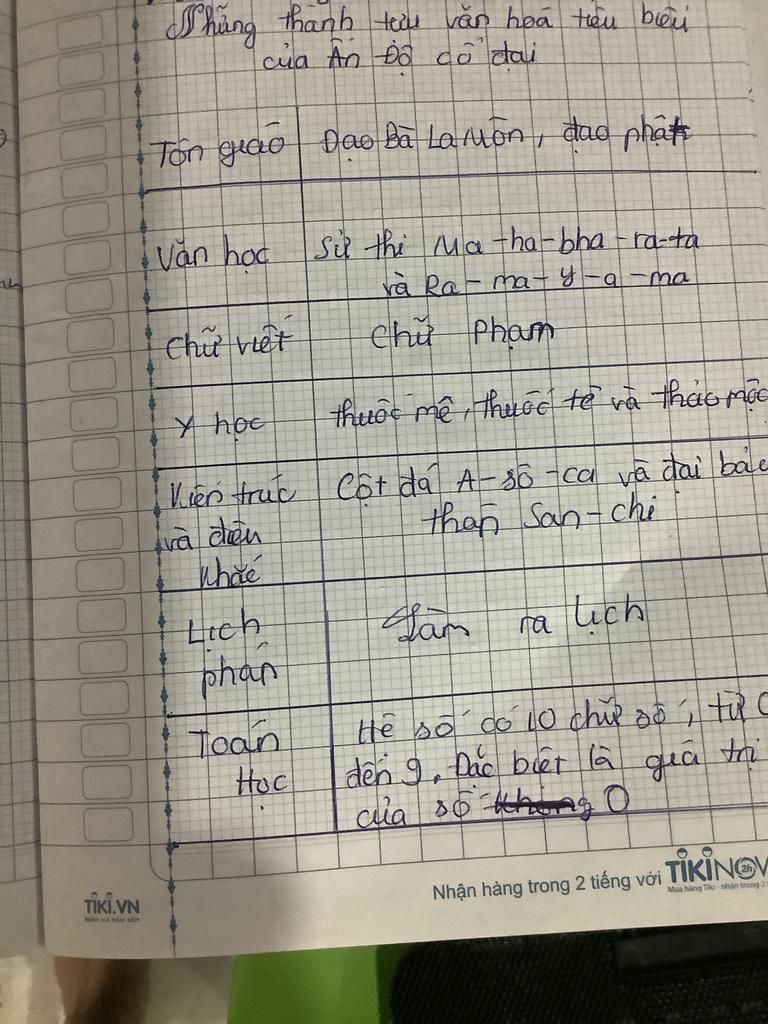 Những thành tựu văn hoá tiêu biểu
của Ấn Độ cổ đại
Tôn giáo Đạo Bà La Môn, đạo phật
Văn học Sử thi Ma-ha-bha-ra-ta
và Ra-ma-y-a-ma
Chữ viết Chữ Phạm
Y học thuốc mê, thuốc tê và thảo mộc
Kiến trúc Cột đá A-sô-ca và đại bảo
và điêu tháp San-chi
khắc
Lịch Làm ra lịch
pháp
Toán Hệ số có 10 chữ số, từ 0
Học đến 9. Đặc biệt là giá trị
của số 0
TIKI.VN
Nhận hàng trong 2 tiếng với TIKINOW
2h